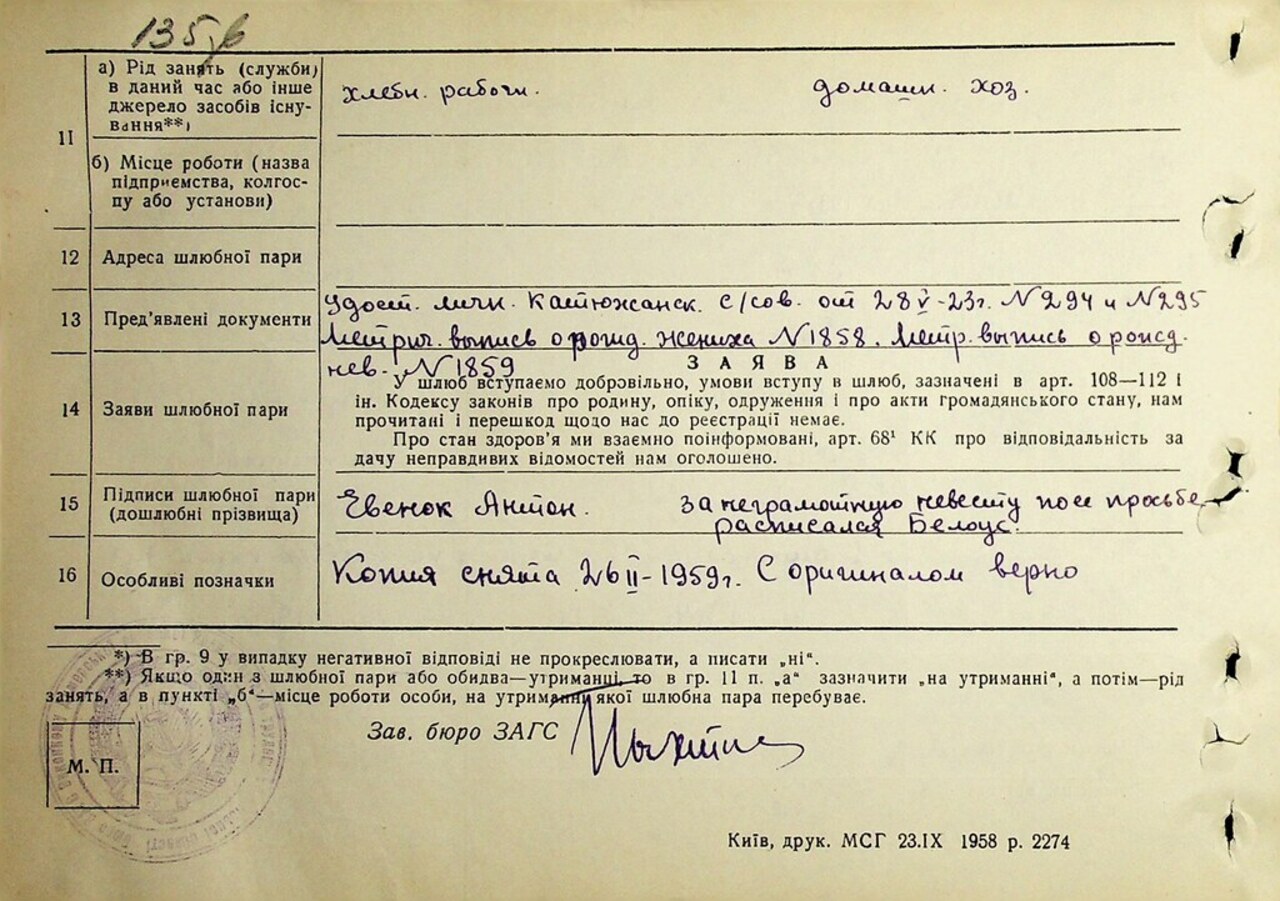 135
11
а) Рід занять (служби)
в даний час або інше
джерело засобів існу-
вання**)
хлебн. работн.
домашн. хоз.
б) Місце роботи (назва
підприємства, колгос-
пу або установи)
12
Адреса шлюбної пари
13
Пред'явлені документи
Удост. личн. Катюжанск. с/сов. от 28 V-23г. №294 и №295
Метрич. выпись о рожд. жениха №1858. Метр. выпись о рожд.
нев. №1859
ЗАЯВА
14
Заяви шлюбної пари
У шлюб вступаємо добровільно, умови вступу в шлюб, зазначені в арт. 108—112 і
ін. Кодексу законів про родину, опіку, одруження і про акти громадянського стану, нам
прочитані і перешкод щодо нас до реєстрації немає.
Про стан здоров'я ми взаємно поінформовані, арт. 68¹ КК про відповідальність за
дачу неправдивих відомостей нам оголошено.
15
Підписи шлюбної пари
(дошлюбні прізвища)
Евенок Антон.
За неграмотную невесту по ее просьбе
расписался Белоус.
16
Особливі позначки
Копия снята 26 II-1959г. С оригиналом верно
*) В гр. 9 у випадку негативної відповіді не прокреслювати, а писати „ні“.
**) Якщо один з шлюбної пари або обидва—утриманці, то в гр. 11 п. „а“ зазначити „на утриманні“, а потім—рід
занять, а в пункті „б“—місце роботи особи, на утриманні якої шлюбна пара перебуває.
Зав. бюро ЗАГС
М. П.
Київ, друк. МСГ 23.IX 1958 р. 2274